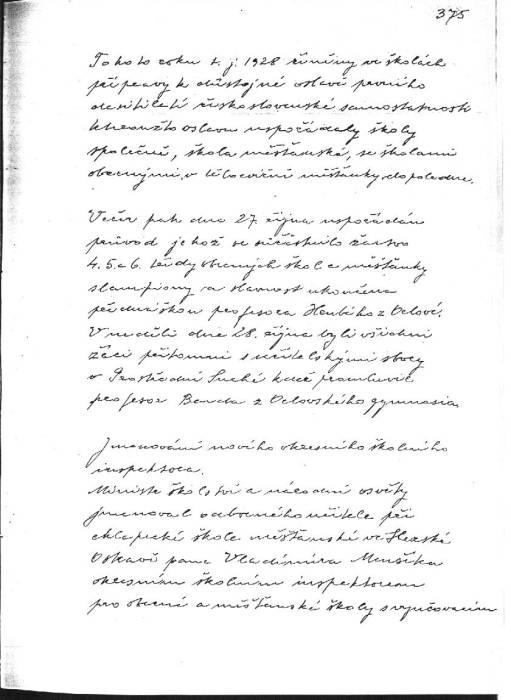 375
Tohoto roku t. j. 1928 činěny ve školách
přípravy k důstojné oslavě prvního
desítiletí československé samostatnosti
kteroužto oslavu uspořádaly školy
společně, škola měšťanská, se školami
obecnými, v tělocvičně měšťanky dopoledne.
Večer pak dne 27. října uspořádán
průvod jehož se súčastnilo žactvo
4. 5. a 6. třídy obecných škol a měšťanky
s lampiony a slavnost ukončena
přednáškou profesora Hrubého z Orlové.
V neděli dne 28. října byli všichni
žáci přítomni s učitelskými sbory
v Prostřední Suché kdež promluvil
profesor Benda z Orlovského gymnasia
Jmenování nového okresního školního
inspektora.
Ministr školství a národní osvěty
jmenoval odborného učitele při
chlapecké škole měšťanské ve Slezské
Ostravě pana Vladimíra Menšíka
okresním školním inspektorem
pro obecné a měšťanské školy s vyučovacím